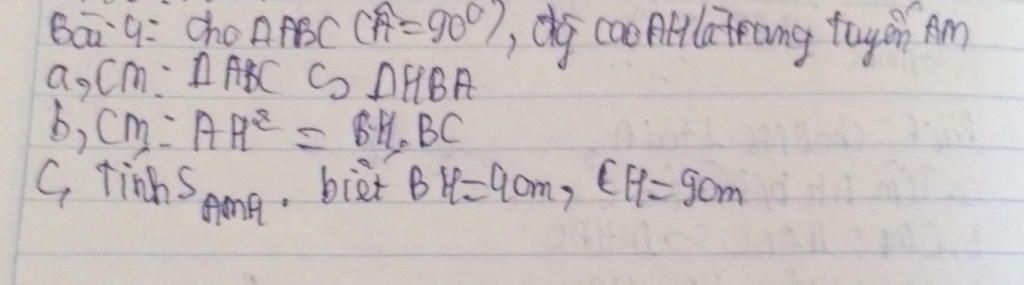 Bài 4: Cho ΔABC (Â=90⁰), đg cao AH là trung tuyến AM
a, CM: ΔABC ∽ ΔHBA
b, CM: AH² = BH.BC
C, Tính S AMH. biết BH=4cm, CH=9cm